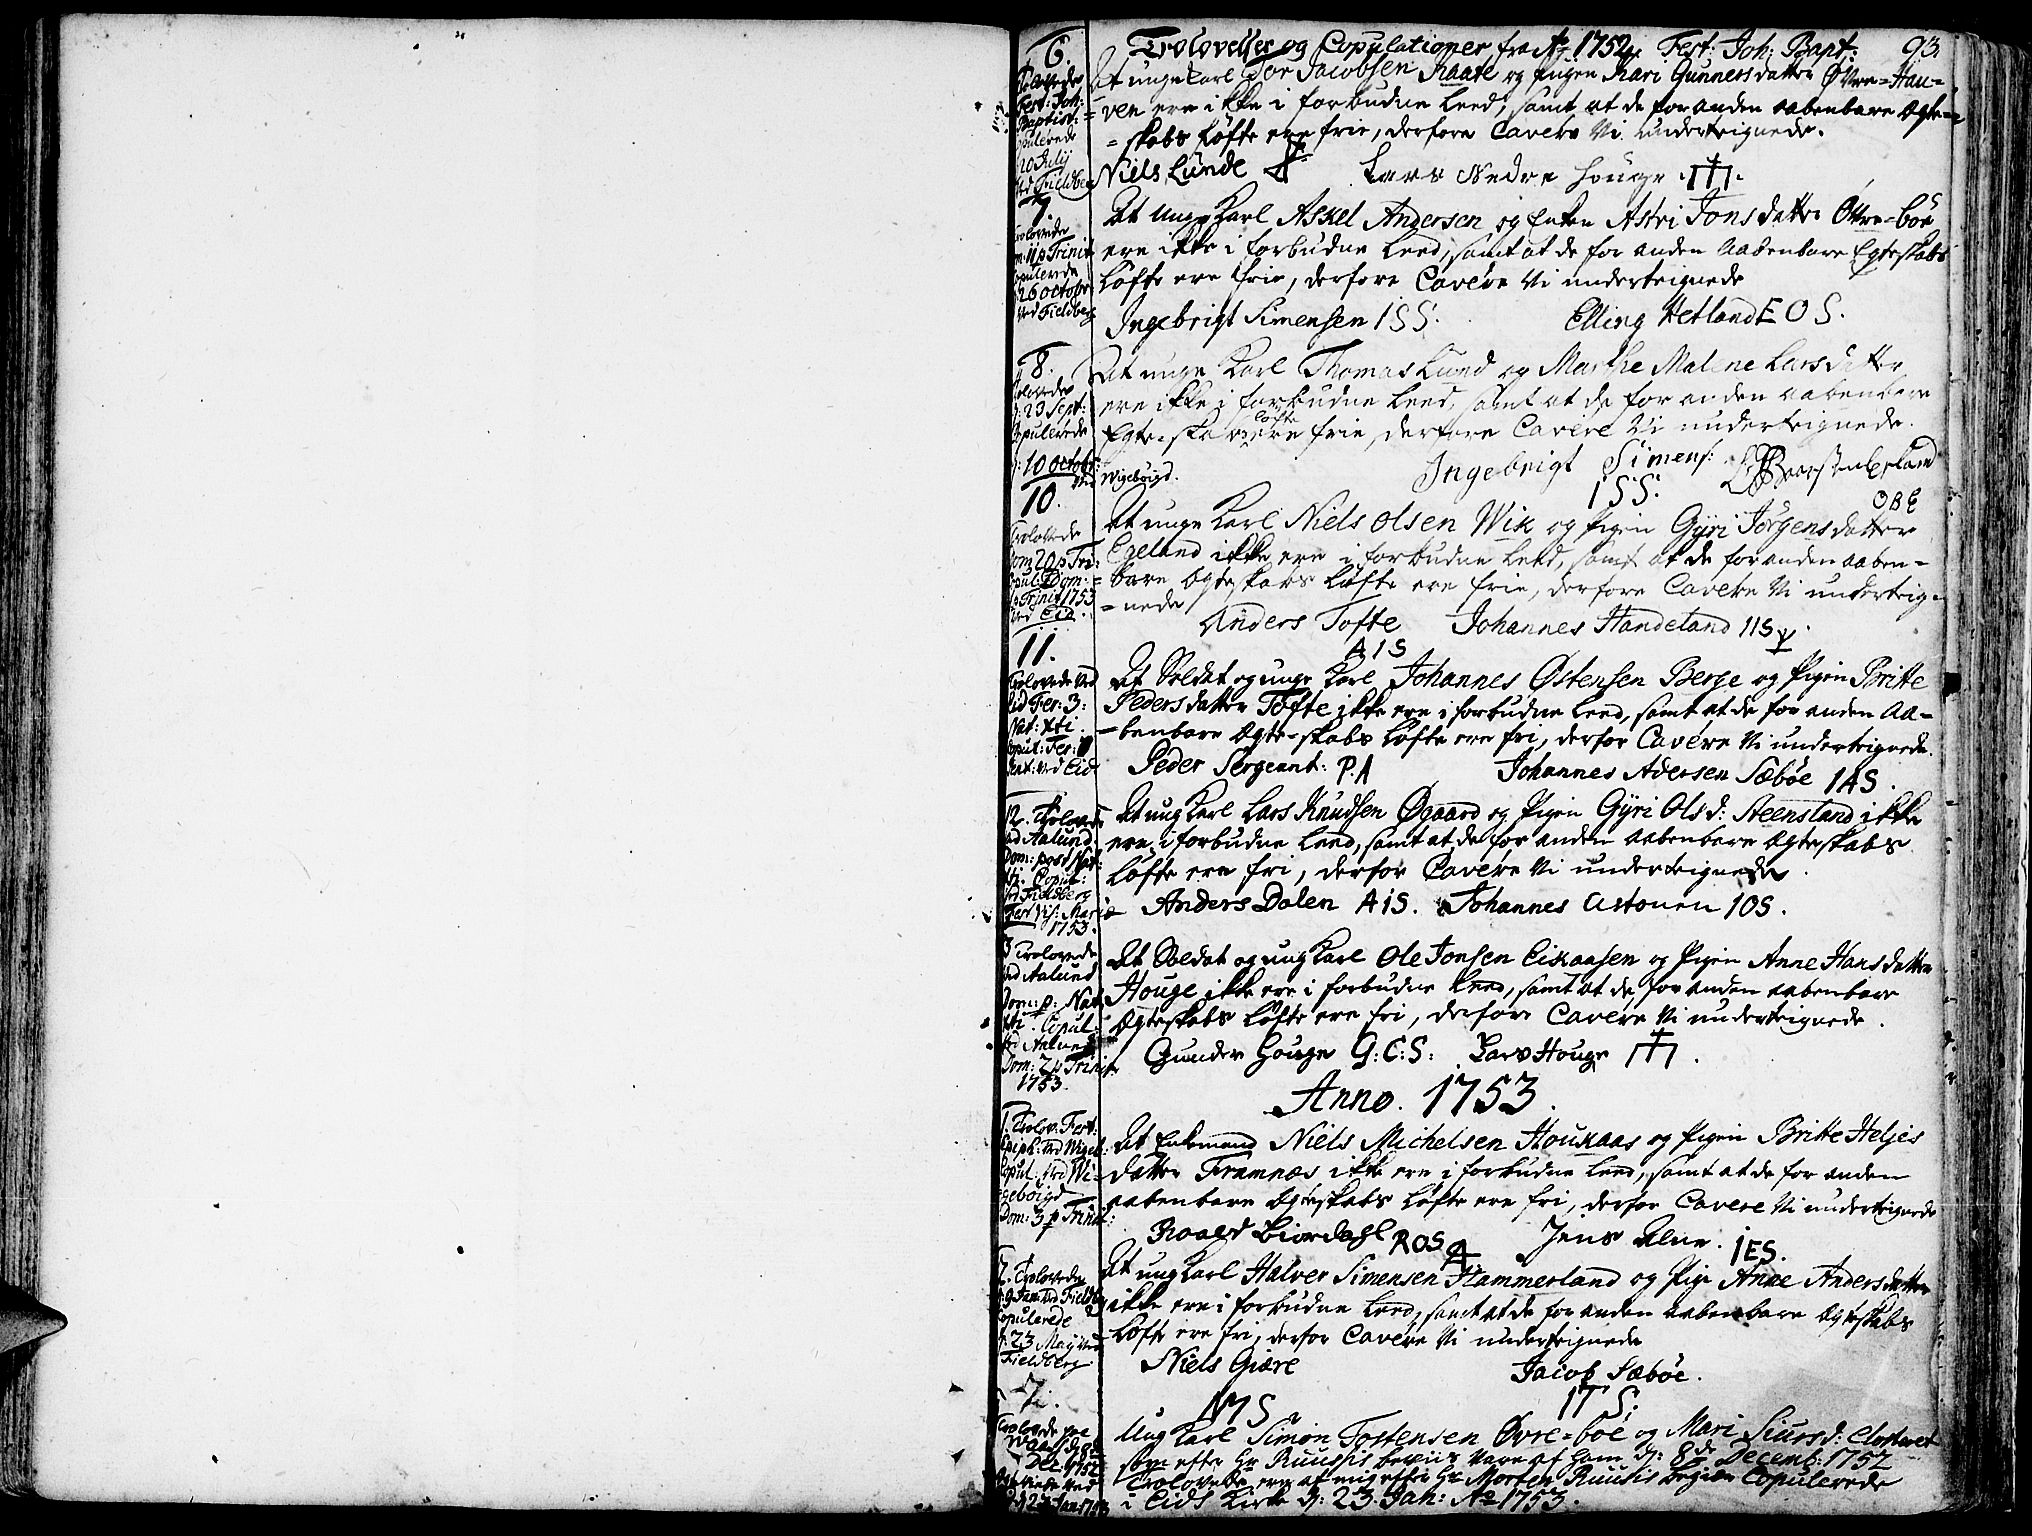 Trolovelser og Copulationer fra Aº 1752 Fest: Joh: Bapt: 93.
6.
Trolovede
Fest: Joh:
Baptist:
Copulerede
20 Julij
ved Fieldberg
At unge Karl Tor Jacobsen Raate og Pigen Kari Gunnersdatter Øvre=Hau=
=ven ere ikke i forbudne Leed, samt at de for anden aabenbare Ægte=
=skabs Løfte ere frie, derfore Cavere Vi underteignede.
Niels Lunde Lars Nedre Houge
7.
Trolovede
11 p Trinit
Copulerede
26 Octobr
ved Fieldberg
At unge Karl Askel Andersen og Enken Astri Jonsdatter Øvre=boe
ere ikke i forbudne Leed, samt at de for anden aabenbare Egteskabs
Løfte ere frie, derfore Cavere Vi underteignede
Ingebrigt Simensen ISS. Elling Hetland EOS.
8.
Trolovede
23 Sept:
Copulerede
10 Octobr:
ved Wigebøigd.
At unge Karl Thomas Lund og Marthe Malene Larsdatter
ere ikke i forbudne Leed, samt at de for anden aabenbare
Egte=skabs løfte ere frie, derfore Cavere Vi underteignede.
Ingebrigt Simens:
ISS.
OBE
10.
Trolovede
Dom: 20 p Tri:
Copul: Dom:
p Trinit 1753
ved Eid.
At unge Karl Niels Olsen Wik og Pigen Gÿri Jørgensdatter
Egeland ikke ere i forbudne Leed, samt at de for anden aaben=
=bare Ægteskabs Løfte ere frie, derfore Cavere Vi underteig=
=nede
Anders Tofte Johannes Handeland IIS
AIS
11.
Trolovede ved
Eid Fer: 3:
Nat: Xti.
Copul: Fer:
ved Eid
At Soldat og unge Karl Johannes Østensen Berge og Pigen Britte
Pedersdatter Tofte ikke ere i forbudne Leed, samt at de for anden Aa=
=benbare Ægte=skabs Løfte ere fri, derfor Cavere Vi underteignede.
Peder Sergeant: P.A Johannes Adersen Sæbøe IAS.
12. Trolovede
ved Aalund
Dom: post Nat:
Xti. Copul:
ved Fieldberg
Fest Vis: Mariæ
1753.
At ung Karl Lars Knudsen Øgaard og Pigen Gÿri Olsd: Steensland ikke
ere i forbudne Leed, samt at de for anden aabenbare Ægteskabs
Løfte ere fri, derfor Cavere Vi underteignede.
Anders Dalen AIS. Johannes Astonen IOS.
13 Trolovede
ved Aalund
Dom: p: Nat:
Xti. Copul:
ved Aalund
Dom: 2 p Trinit
1753.
At Soldat og ung Karl Ole Jonsen Eikaasen og Pigen Anne Hansdatter
Houge ikke ere i forbudne Leed, samt at de for anden aabenbare
Ægteskabs Løfte ere fri, derfore Cavere Vi underteignede.
Gunder Houge G:C:S: Lars Houge
Anno. 1753.
1. Trolov: Fest:
Epiph: ved Wigeb:
Copul: ved Wi=
gebøigd
Dom: 3 p Trinit:
At Enkemand Niels Michelsen Houkaas og Pigen Britte Heljes
datter Framnæs ikke ere i forbudne Leed, samt at de for anden
aabenbare Ægteskabs Løfte ere fri, derfor Cavere Vi underteignede
Roald Biordahl ROS Jens Alne. IES.
2. Trolovede
9 Jan: ved Fieldb:
Copulerede
23 Maÿ ved
Fieldberg.
At ung Karl Halver Simensen Hammerland og Pige Anne Andersdatter
ikke ere i forbudne Leed, samt at de for anden aabenbare Ægteskabs
Løfte ere fri, derfor Cavere Vi underteignede
Niels Giære Jacob Sæbøe.
NIS ITS.
Trolovede
Dec: 1752
ved
23 Jan: 1753
Ung Karl Simon Tostensen Øvre=boe og Mari Siursd: Closteret
som efter Hr Ruusis beviis vare af ham d: 8de Decemb: 1752
Trolovede ere af mig efter Hr Morten Ruusis begier Copulerede
i Eids Kirke d: 23. Jan: Aº 1753.